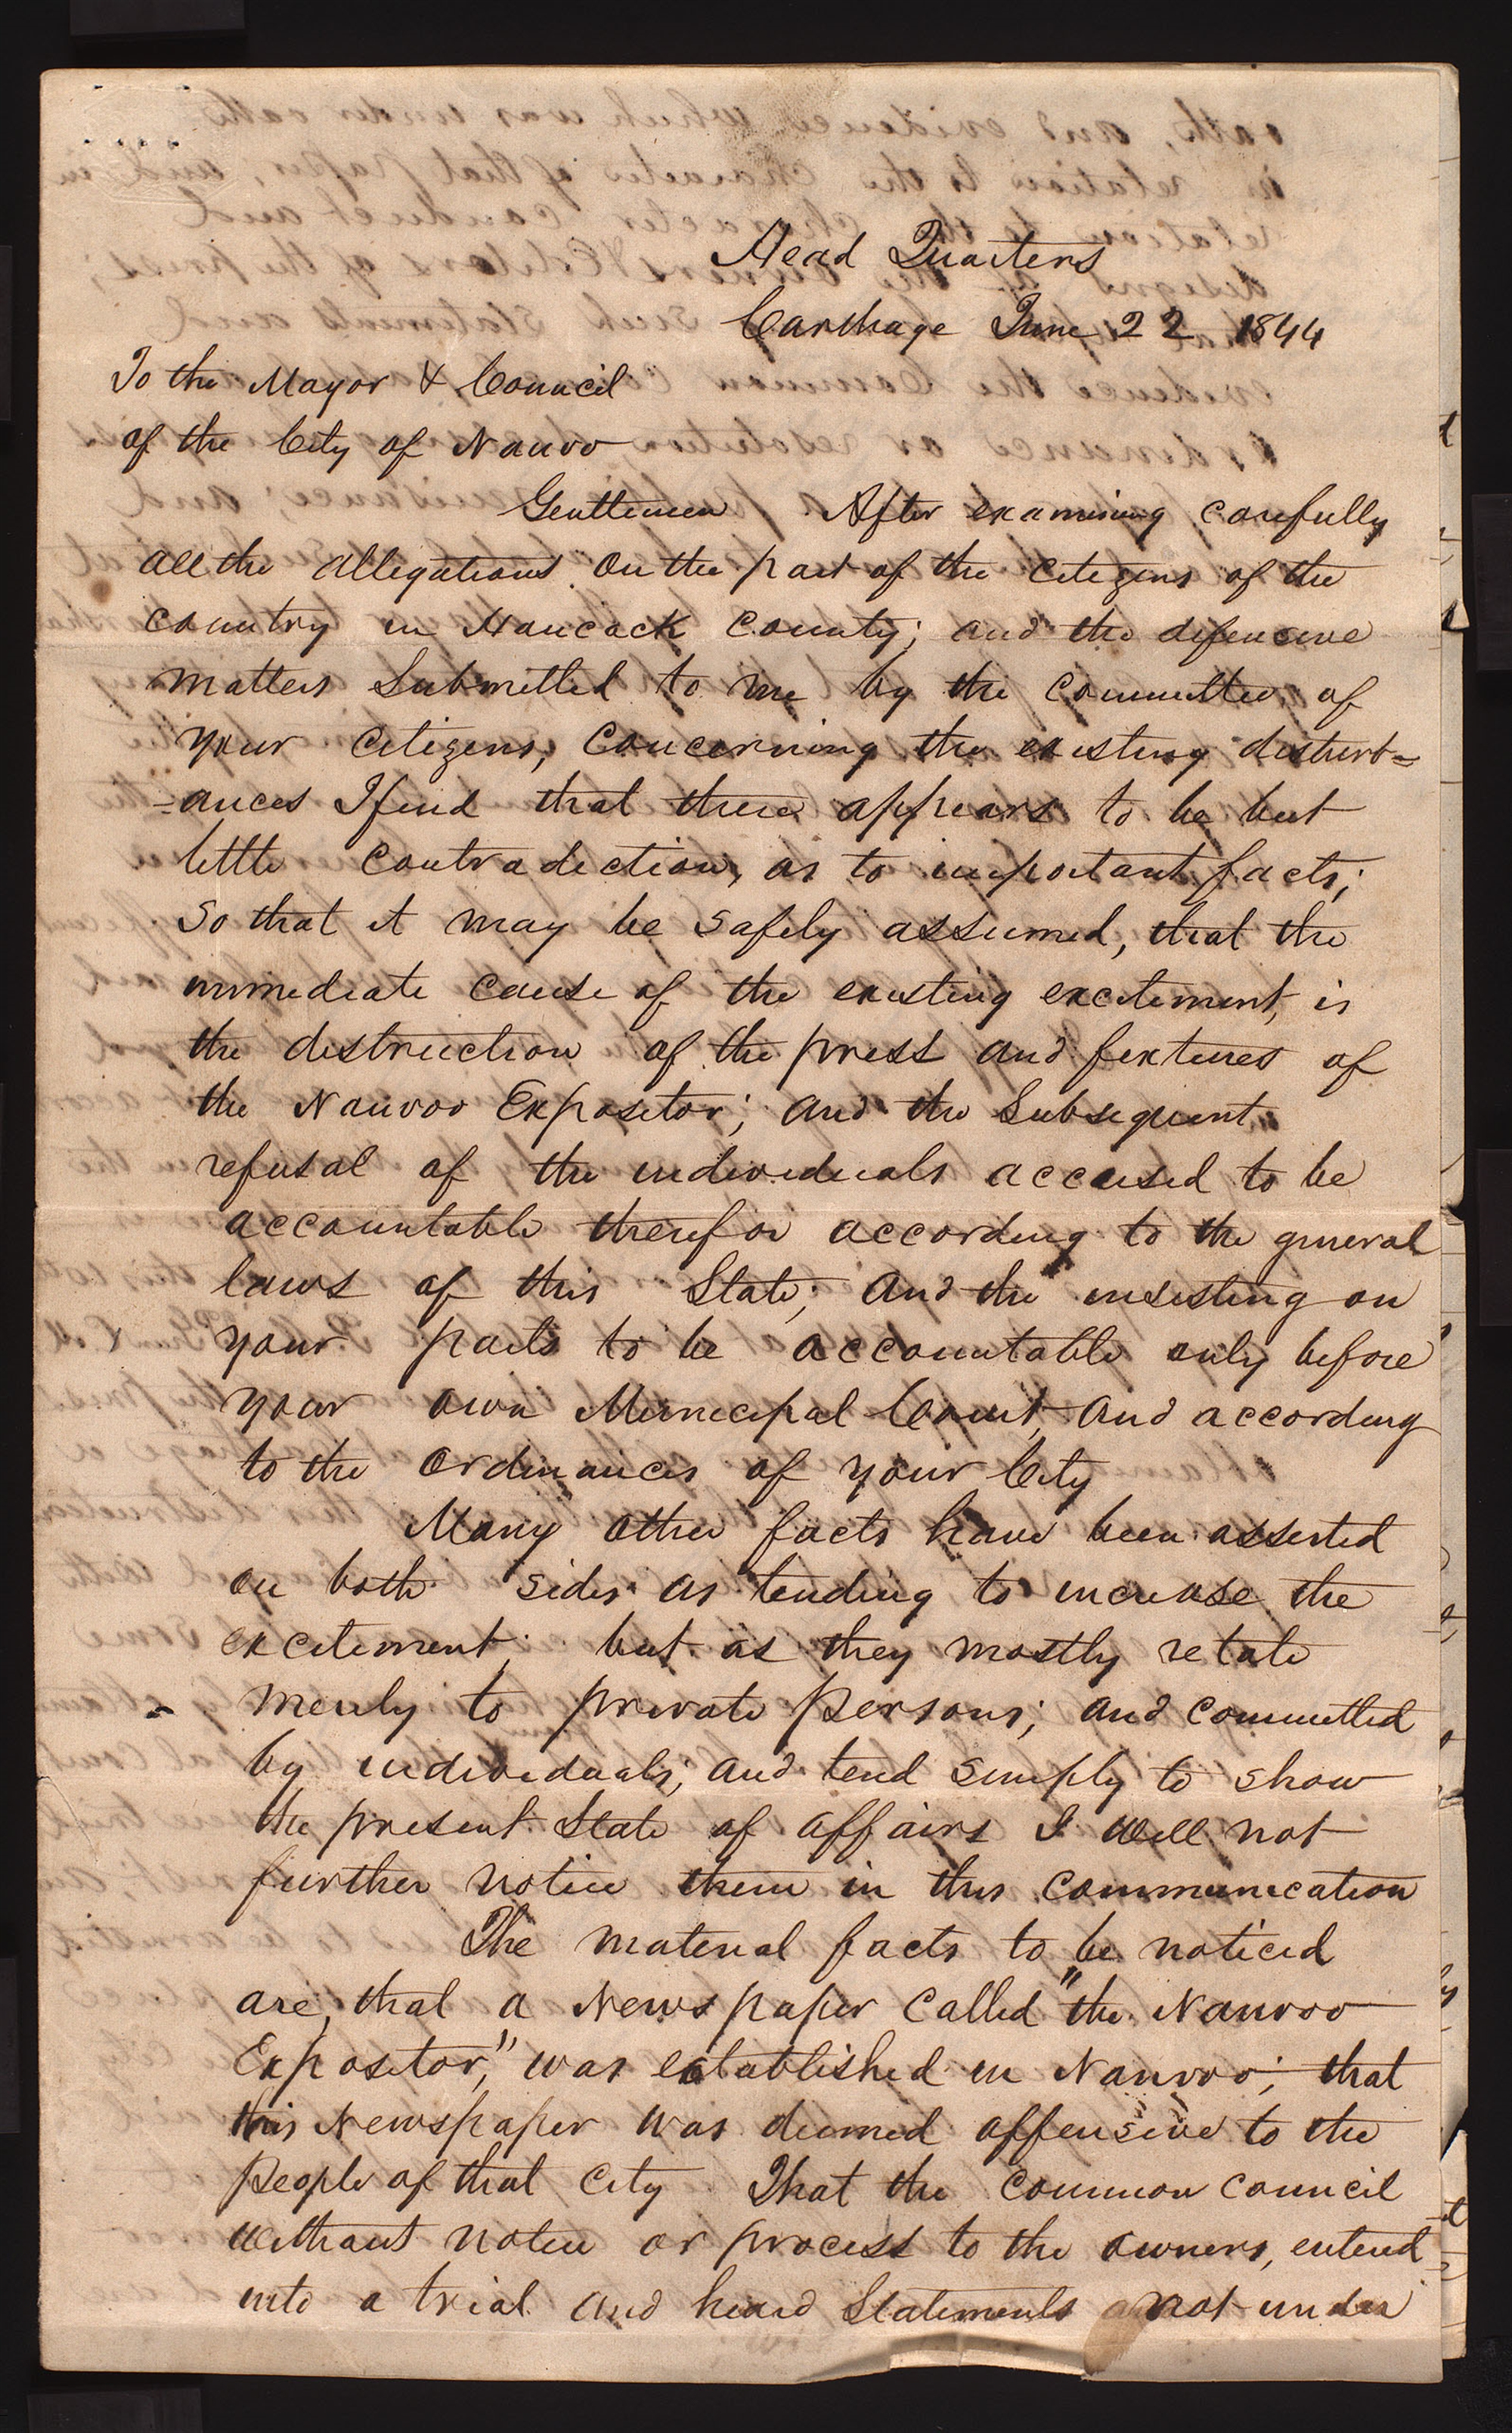 Head Quarters
Carthage June 22 1844
To the Mayor & Council
of the City of Nauvoo
Gentlemen After examining carefully
all the allegations on the part of the citizens of the
country in Hancock County; and the defencive
matters submitted to me by the committee of
your citizens, concerning the existing disturb=
=ances I find that there appears to be but
little contradiction, as to important facts;
so that it may be safely assumed, that the
immediate cause of the existing excitement, is
the destruction of the press and fixtures of
the Nauvoo Expositor; and the subsequent
refusal of the individuals accused to be
accountable therefor according to the general
laws of this State; and the insisting on
your parts to be accountable only before
your own Municipal Court, and according
to the ordinances of your City
Many other facts have been asserted
on both sides as tending to increase the
excitement; but as they mostly relate
merely to private persons; and committed
by individuals; and tend simply to show
the present State of affairs I will not
further notice them in this communication
The material facts to be noticed
are, that a News paper called "the Nauvoo
Expositor," was established in Nauvoo; that
this Newspaper was deemed offensive to the
people of that City That the common council
without notice or process to the owners, entered
into a trial and heard Statements not under